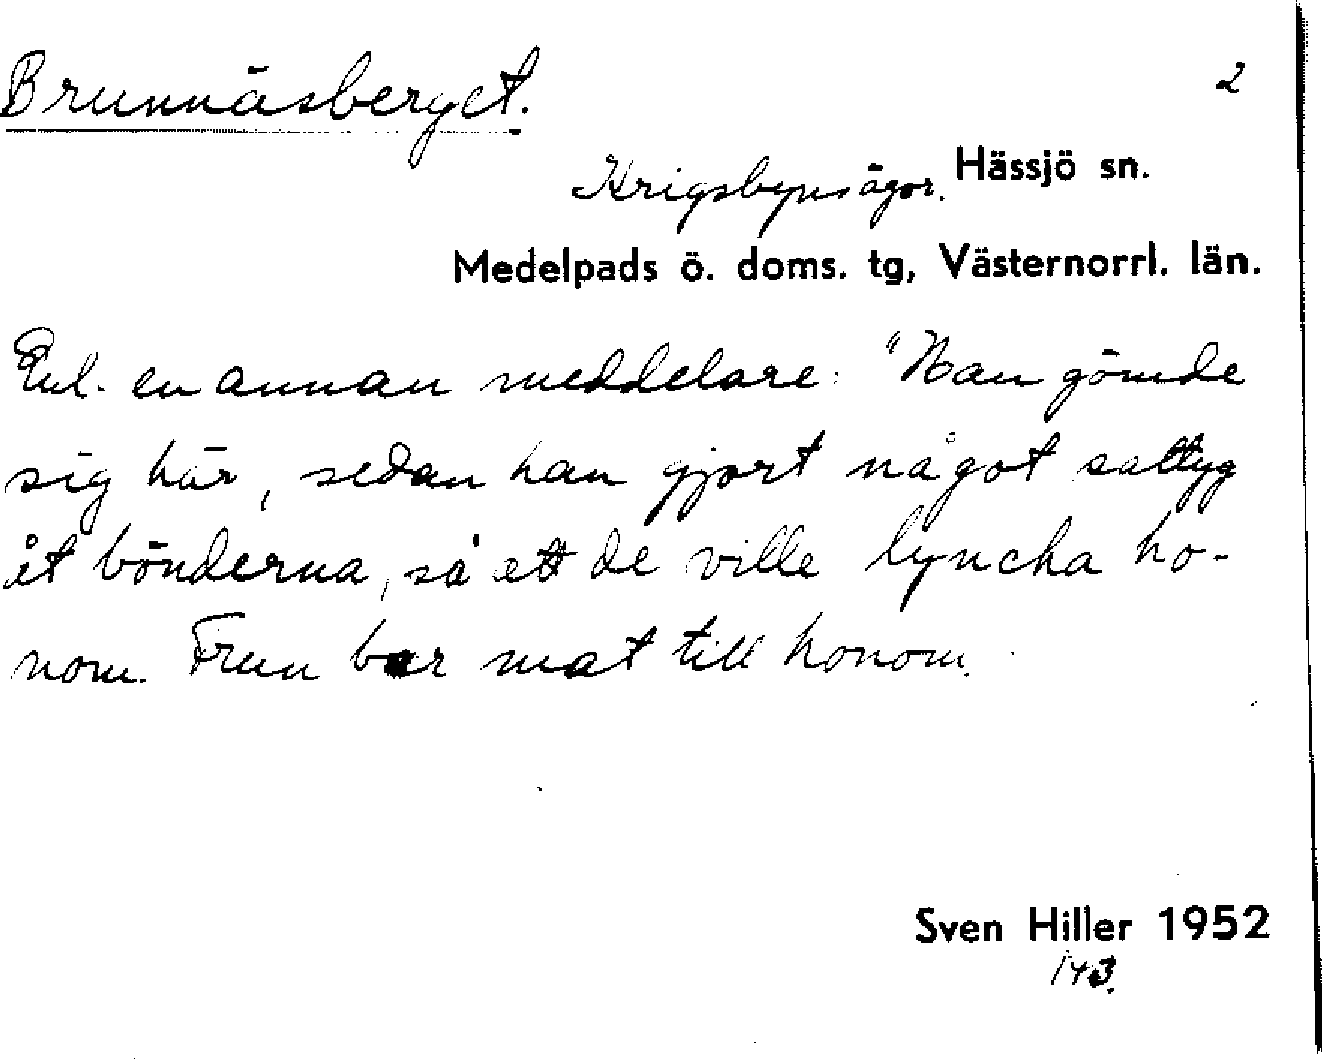 Brunnäsberget.
2
Krigsbyns ägor. Hässjö sn.
Medelpads ö. doms. tg, Västernorrl. län.
Enl. en annan meddelare: "Han gömde
sig här, sedan han gjort något sattyg
åt bönderna, så att de ville lyncha ho-
nom. Frun bar mat till honom.
Sven Hiller 1952
143.